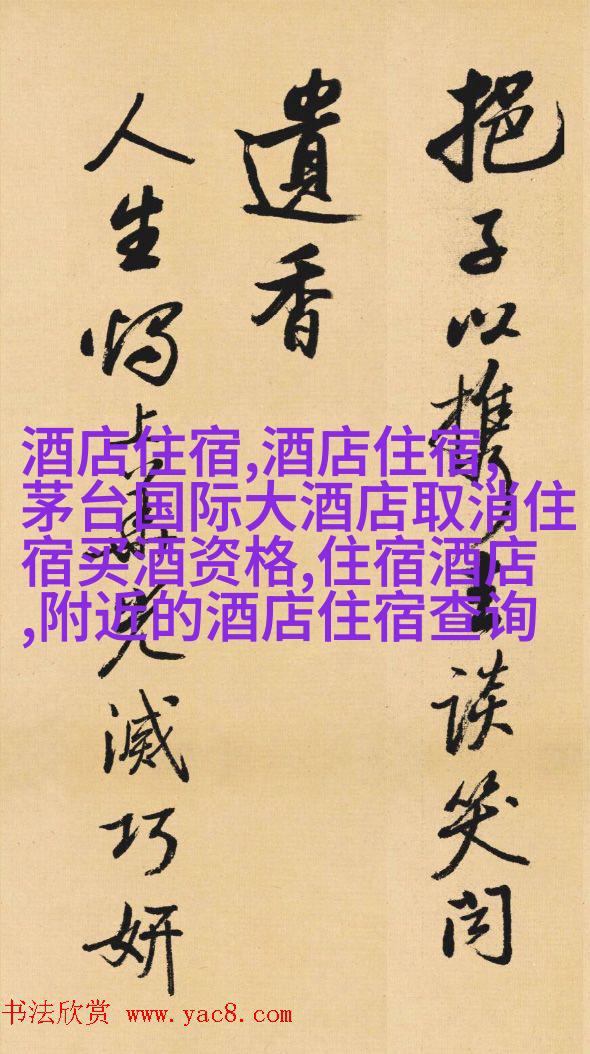 挹子以携手談笑間
遺香
人生
上
老滅巧妍
酒店住宿,酒店住宿,
茅台国际大酒店取消住
宿买酒资格,住宿酒店
,附近的酒店住宿查询
书法欣赏 www.yac8.com